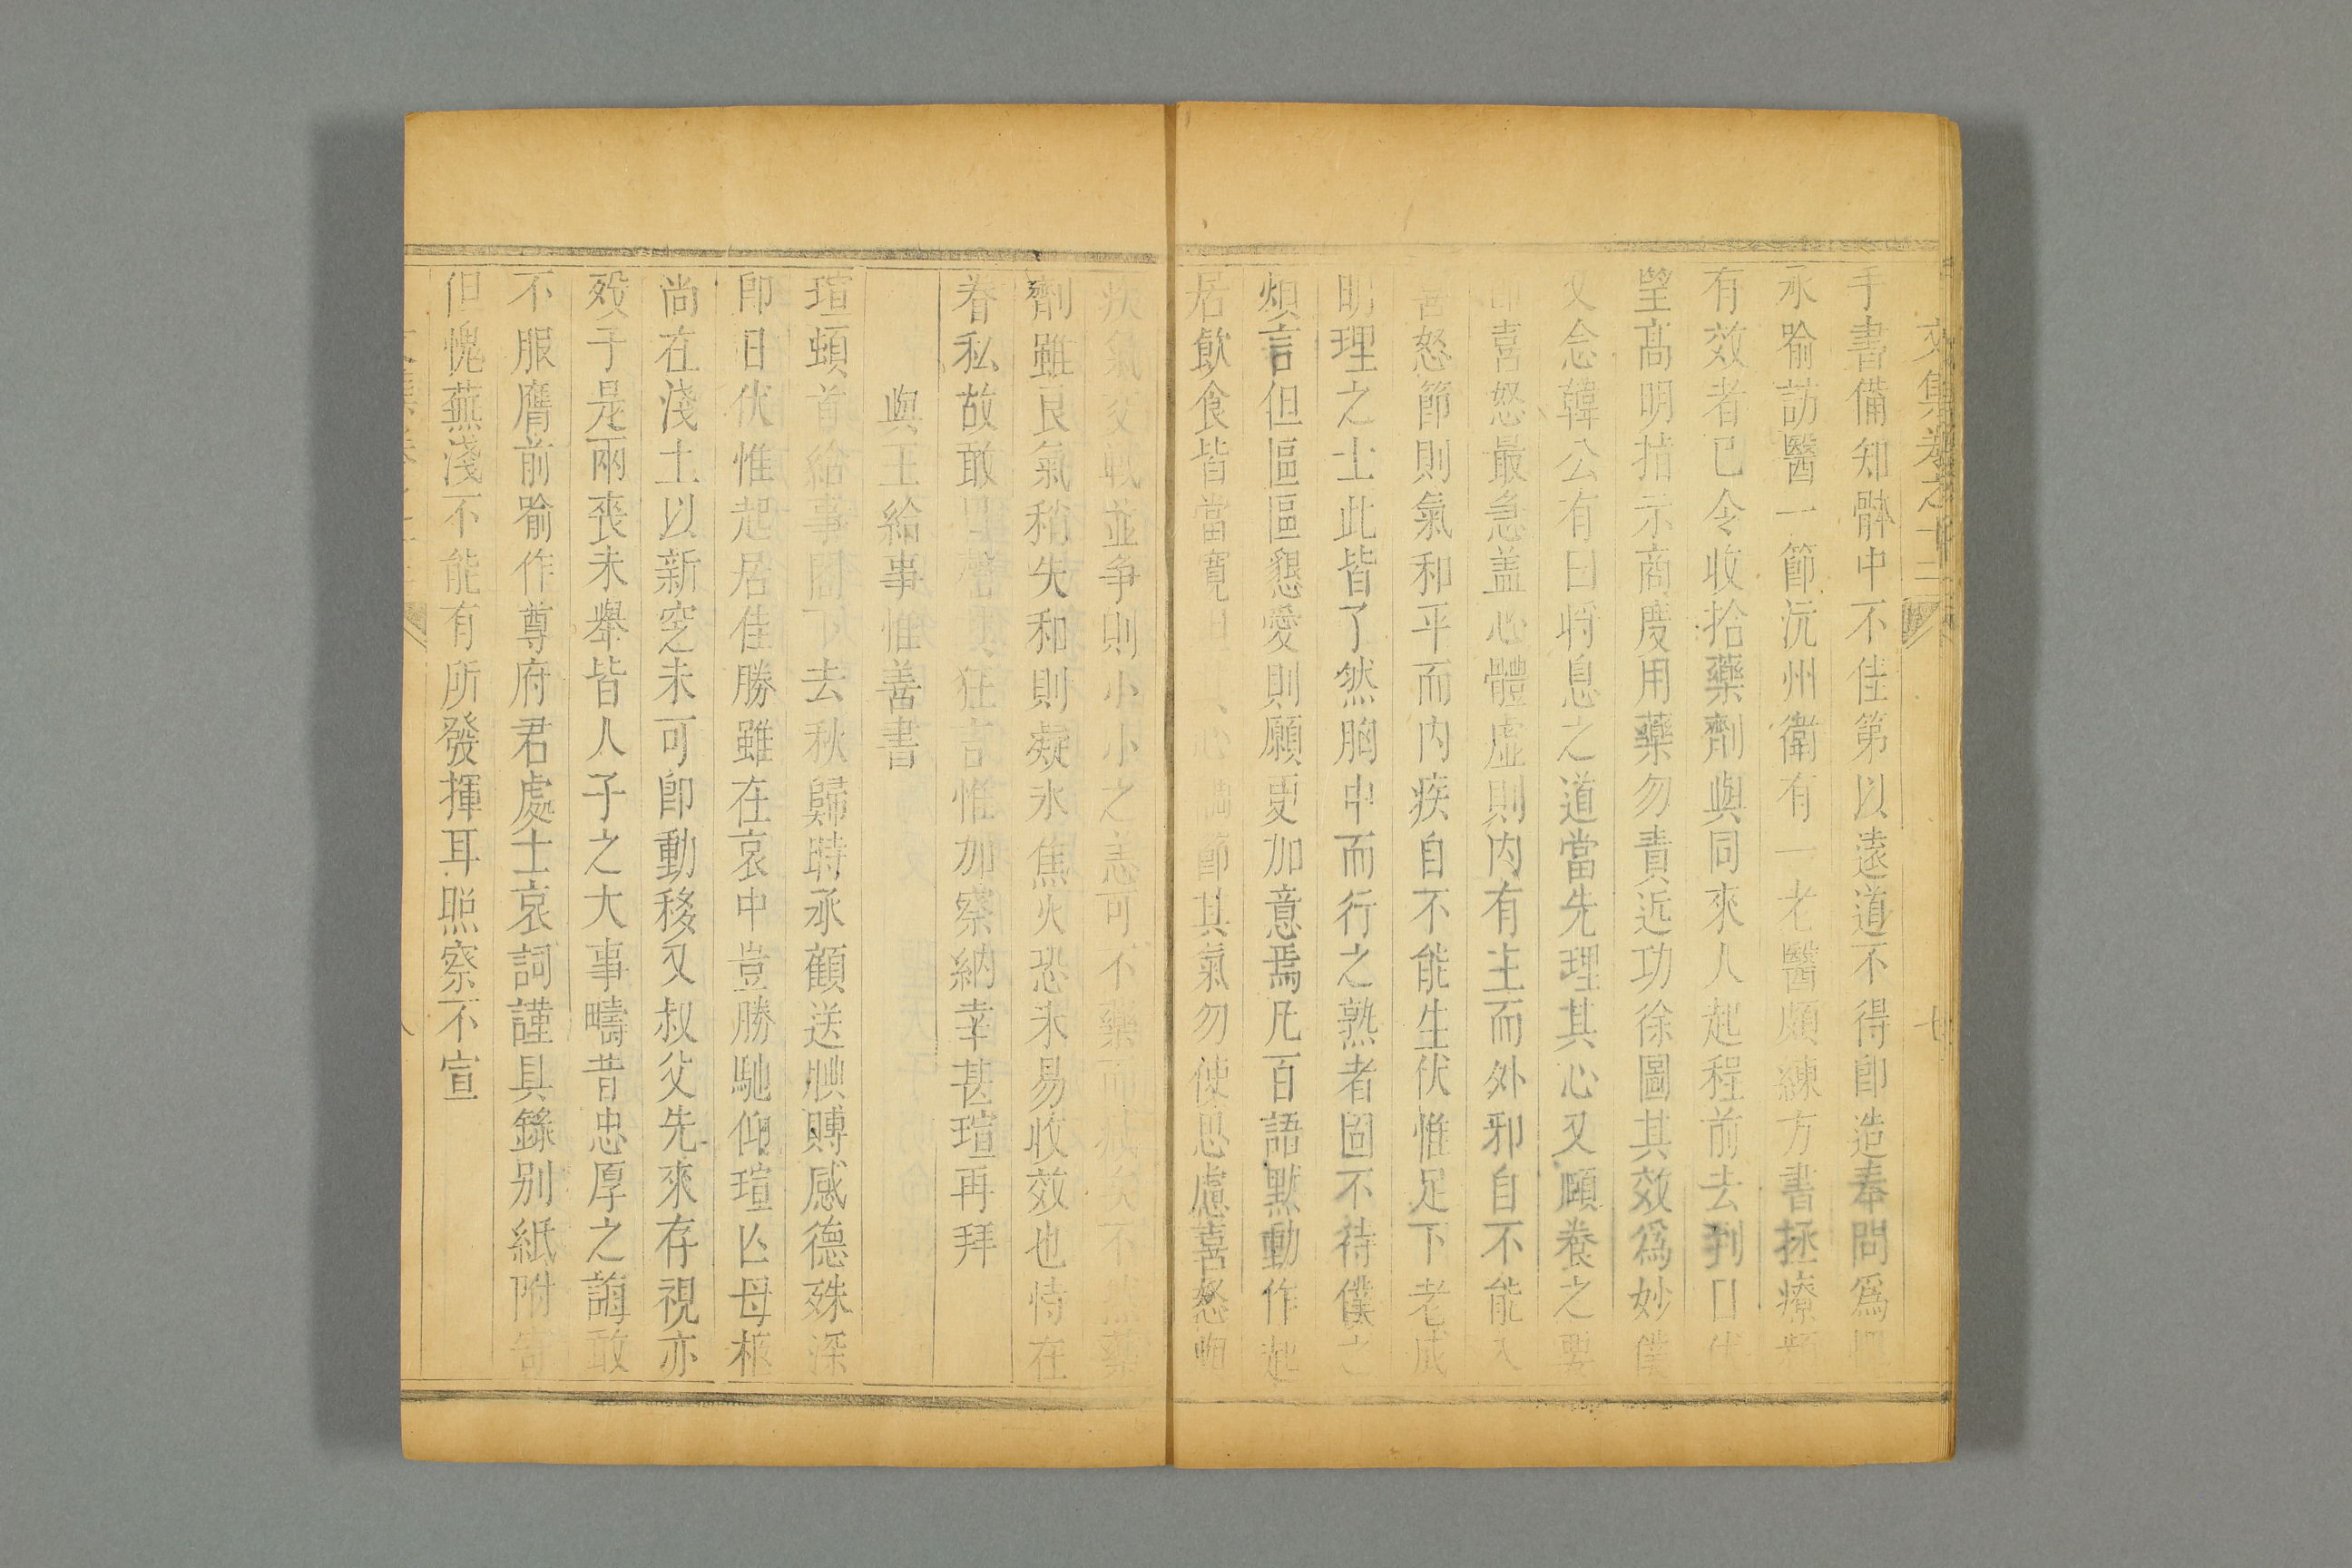 文集卷之十二 七
手書備知骵中不佳第以遠道不得卽造奉問爲
承喻訪醫一節沅州衛有一老醫頗練方書拯療
有效者已令收拾藥劑與同來人起程前去到日伏
望髙明指示商度用藥勿責近功徐圖其效爲妙僕
又念韓公有曰將息之道當先理其心又頤養之要
喜怒最急盖心體虛則内有主而外邪自不能入
喜怒節則氣和平而内疾自不能生伏惟足下老成
明理之士此皆了然胸中而行之熟者固不待僕之
煩言但區區懇愛則願更加意焉凡百語黙動作起
居飲食皆當寛 心 調節其氣勿使思慮喜怒與
疾氣交戰並争則小小之恙可不藥而 不然藥
劑雖良氣稍失和則凝氷焦火恐未易收效也恃在
眷私故敢 狂言惟加察納幸甚瑄再拜
與王給事惟善書
瑄頓首給事閣下去秋歸時承顧送腆賻感德殊深
卽日伏惟起居佳勝雖在哀中豈勝馳仰瑄亾母柩
尚在淺土以新窆未可卽動移又叔父先來存視亦
殁于是兩喪未舉皆人子之大事疇昔忠厚之誨敢
不服膺前喻作尊府君處士哀詞謹具錄别紙附寄
但愧蕪淺不能有所發揮耳照察不宣